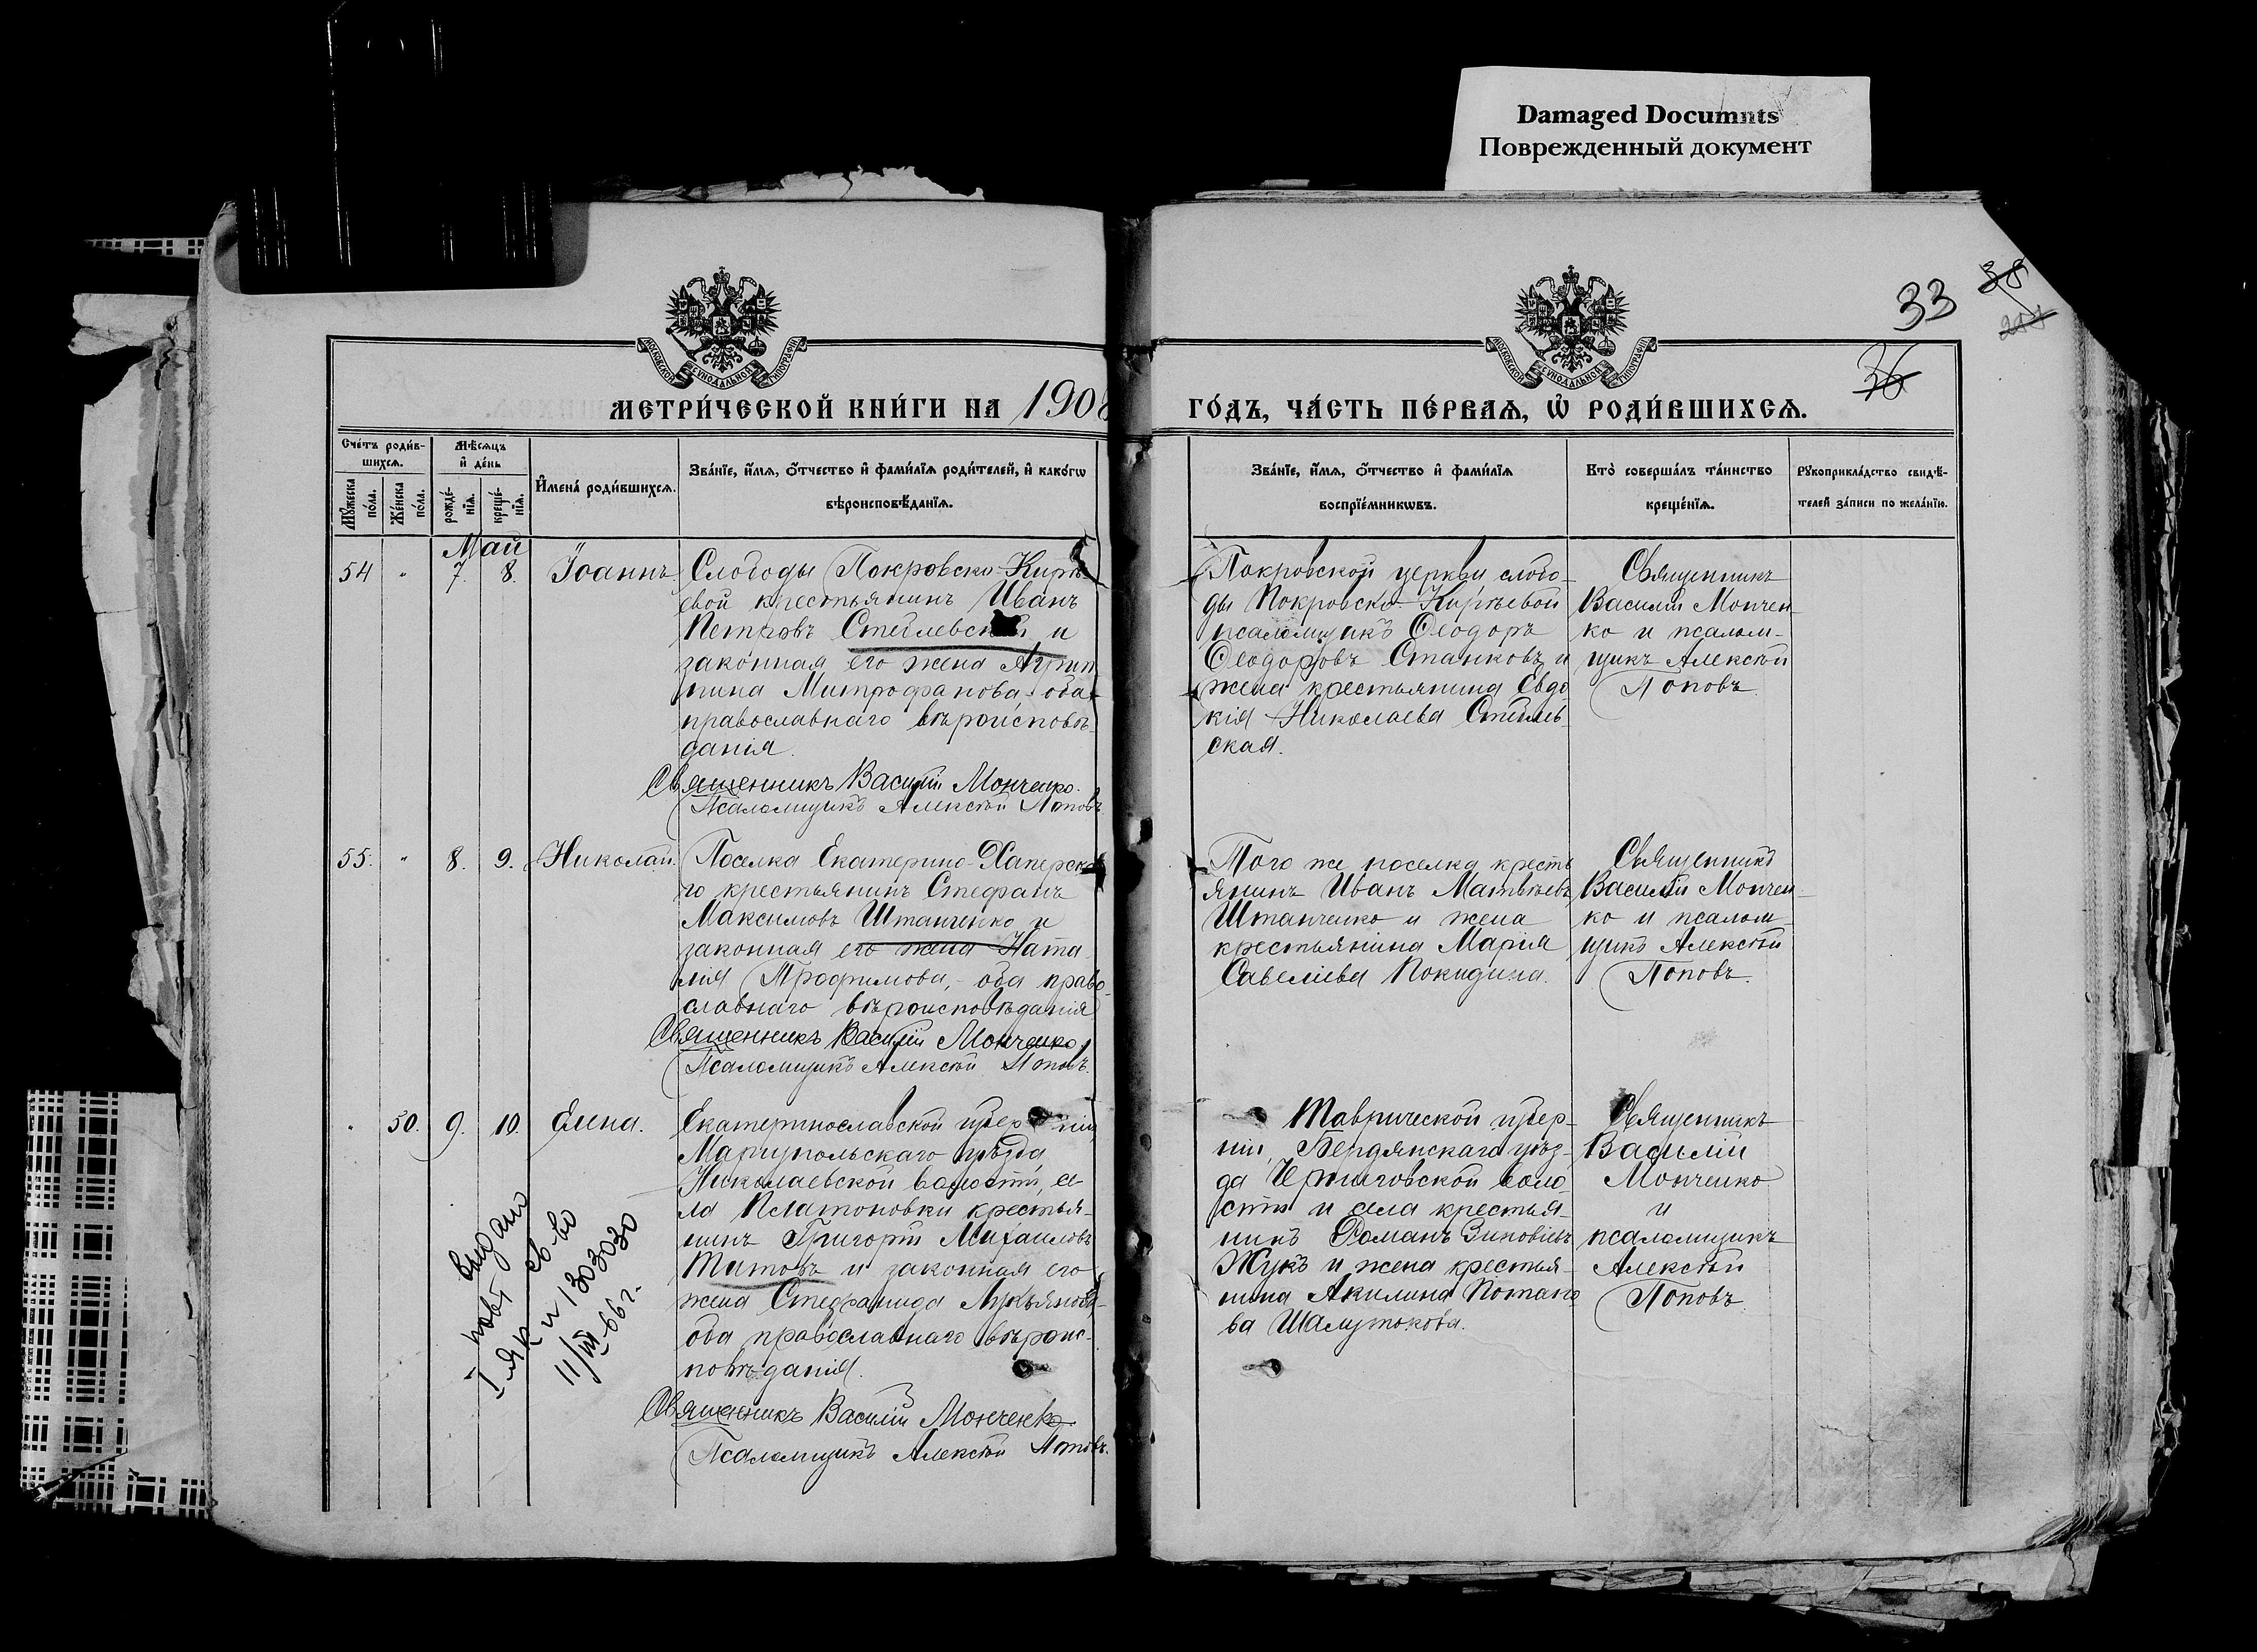 Damaged Documnts
Поврежденный документ
33
38
36
МОСКОВСКОЙ СѴНОДАЛЬНОЙ ТИПОГРАФІИ
МОСКОВСКОЙ СѴНОДАЛЬНОЙ ТИПОГРАФІИ
МЕТРИ́ЧЕСКОЙ КНИ́ГИ НА 1908
ГО́ДЪ, ЧА́СТЬ ПЕ́РВАѦ, Ѡ҆ РОДИ́ВШИХСѦ.
Сче́тъ роди́в-
шихсѧ.
Мꙋ́жеска
по́ла.
Же́нска
по́ла.
Мѣ́сѧцъ
и҆ де́нь
рожде́-
нїѧ.
креще́-
нїѧ.
И҆мена̀ роди́вшихсѧ.
Зва́нїе, и҆́мѧ, ѻ҆́тчество и҆ фами́лїѧ роди́телей, и҆ како́гѡ
вѣроисповѣ́данїѧ.
Зва́нїе, и҆́мѧ, ѻ҆́тчество и҆ фами́лїѧ
воспрїе́мникѡвъ.
Кто̀ соверша́лъ та́инство
креще́нїѧ.
Рꙋкоприкла́дство свидѣ́-
телей за́писи по жела́нїю.
Май
54 " 7. 8. Іоаннъ.
Слободы Покровско-Кирѣ-
евой крестьянинъ Иванъ
Петровъ Стеблевскій и
законная его жена Агрип
пина Митрофанова - оба
православнаго вѣроисповѣ-
данія.
Священникъ Василій Монченко.
Псаломщикъ Алексѣй Поповъ
Покровской церкви слобо-
ды Покровско-Кирѣевой
псаломщикъ Ѳеодоръ
Ѳеодоровъ Станковъ и
жена крестьянина Евдо
кія Николаева Стеблев-
ская.
Священникъ
Василій Мончен-
ко и псалом-
щикъ Алексѣй
Поповъ.
55. " 8. 9. Николай.
Поселка Екатерино-Хаперска
го крестьянинъ Стефанъ
Максимовъ Штанченко и
законная его жена Ната
лія Трофимова, - оба право-
славнаго вѣроисповѣданія
Священникъ Василій Монченко.
Псаломщикъ Алексѣй Поповъ.
Того же поселка кресть
янинъ Иванъ Матвѣевъ
Штанченко и жена
крестьянина Марія
Савеліева Покидина.
Священникъ
Василій Мончен-
ко и псалом
щикъ Алексѣй
Поповъ.
" 50. 9. 10. Елена.
Екатеринославской губерніи
Маріупольскаго уѣзда
Николаевской волости, се-
ла Платоновки крестья-
нинъ Григорій Михаиловъ
Титовъ и законная его
жена Стефанида Лукьянова-
оба православнаго вѣроис-
повѣданія.
Священникъ Василій Монченко
Псаломщикъ Алексѣй Поповъ.
Таврической губер-
ніи, Бердянскаго уѣз-
да Черниговской воло-
сти и села крестья-
нинъ Романъ Зиновіевъ
Жукъ и жена крестья-
нина Акилина Потапо
ва Шалутокова.
Священникъ
Василій
Монченко
и
псаломщикъ
Алексѣй
Поповъ
І повт видано
ЯК св-во
и 1303030
11/VII-66 г.